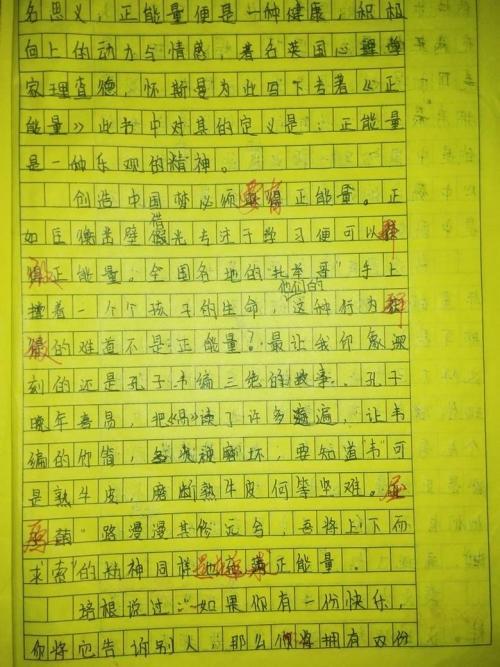 名思义，正能量便是一种健康，积极
向上的动力与情感，著名英国心理学
家理查德 怀斯曼为此写下专著《正
能量》此书中对其的定义是：正能量
是一种乐观的精神。
创造中国梦必须要有正能量。正
如匡衡凿壁借光专注于学习便可以释
放正能量。全国各地的"托举哥"手上
撑着一个个孩子的生命，他们的这种行为释
放的难道不是正能量？最让我印象深
刻的还是孔子韦编三绝的故事，孔子
晚年喜易，把读了许多遍，让韦
编的竹简，磨坏，要知道"韦"可
是熟牛皮，磨断熟牛皮何等坚难。屈
原"路漫漫其修远兮，吾将上下而
求索"的精神同样正能量．
培根说过："如果你有一份快乐，
你将它告诉别人，那么你将拥有两份